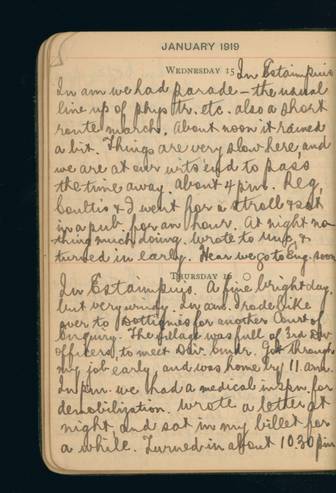 JANUARY 1919
WEDNESDAY 15 In Estaimpuis
In am we had parade - the usual
line up of phys tr. etc. also a short
route march. About noon it rained
a bit. Things are very slow here, and
we are at our wits end to pass
the time away. About 4 p.m. Reg.
& I went for a stroll & sat
in a pub. for an hour. At night no
thing much doing. Wrote to &
turned in early. Hear we go to Eng. soon
THURSDAY 16
In Estaimpuis. A fine bright day,
but very windy. In am. I rode bike
over to Dottignies for another Court of
Enquiry. The village was full of 3rd Div
officers, to meet Div. Got through
my job early, and was home by 11 a.m.
In p.m. we had a medical inspn. for
demobilization. Wrote a letter at
night, and sat in my billet for
a while. Turned in about 10.30 pm